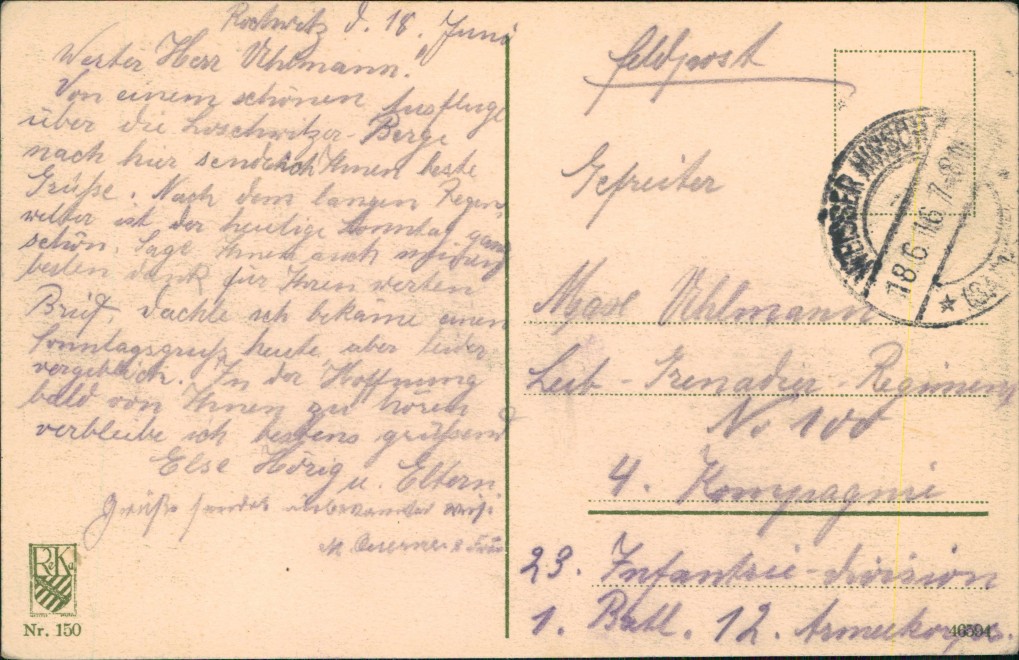 Rochwitz d. 18. Juni
Werter Herr Uhlmann.
Von einem schönen Ausfluge
über die Loschwitzer-Berge
nach hier sende ich Ihnen beste
Grüße. Nach dem langen Regen-
wetter ist der heutige Sonntag ganz
schön. Sage Ihnen auch
besten dank für Ihren werten
Brief, dachte ich bekäme einen
Sonntagsgruß heute, aber leider
vergeblich. In der Hoffnung
bald von Ihnen zu hören
verbleibe ich bestens grüßend
Else Hörig u. Eltern.
Grüße sendet unbekannter weise
M.
R&K
Nr. 150
Feldpost
WEISSER HIRSCH
18.6.16. 7-8N
Gefreiter
Max Uhlmann
Leib-Grenadier-Regiment
No 100
4. Kompagnie
23. Infantrie-division
1. Batl. 12. Armeekorps.
46594